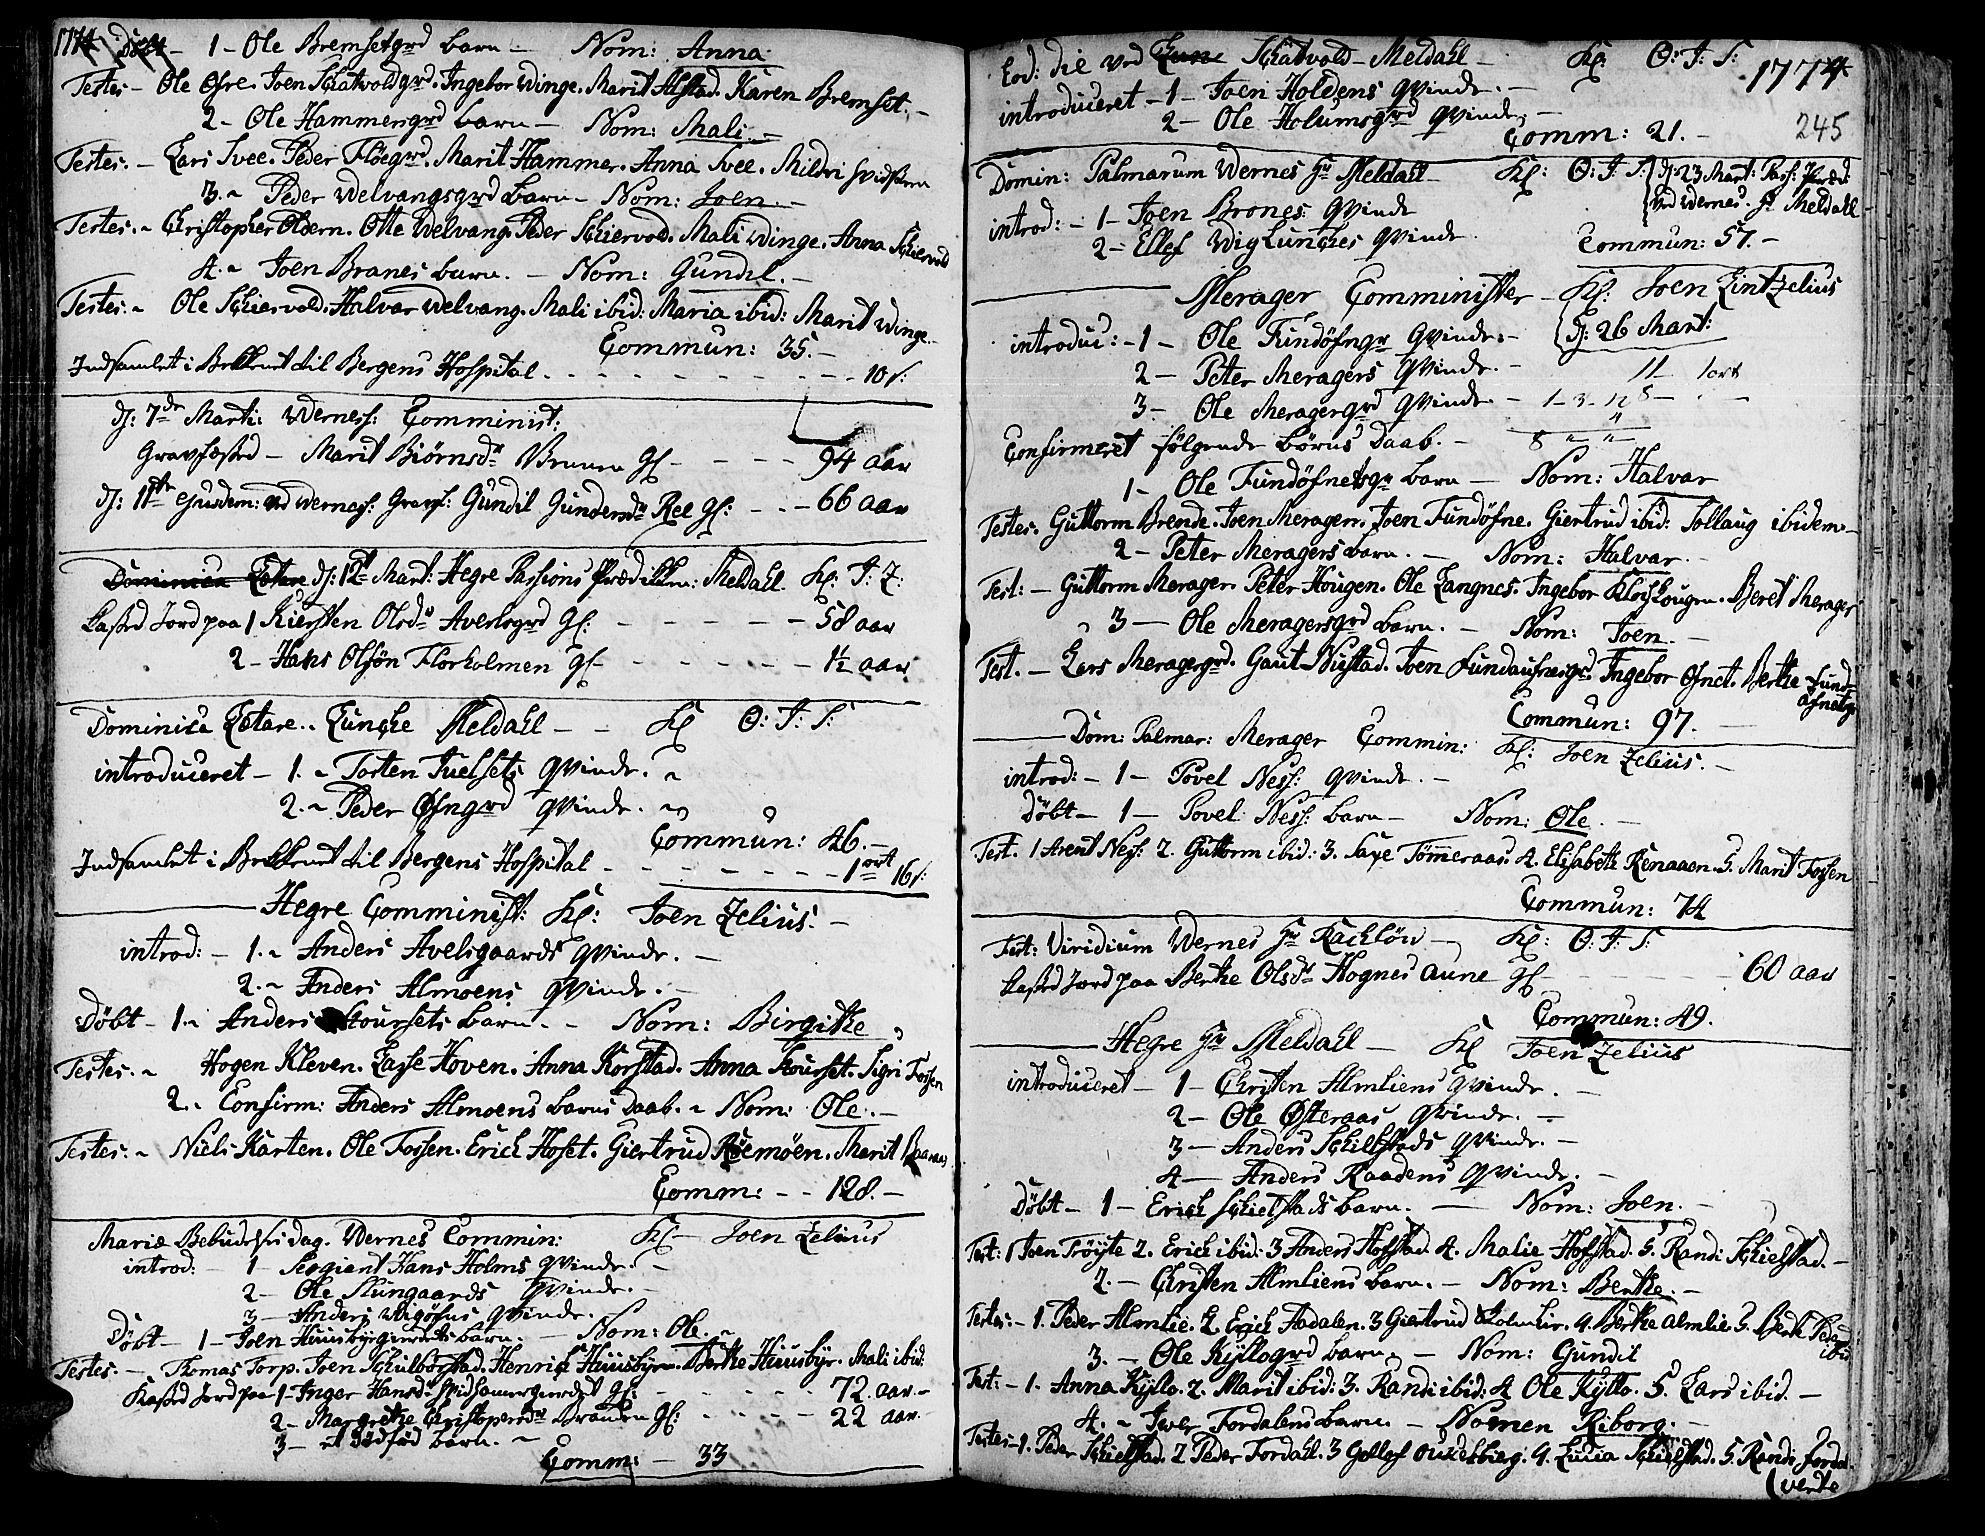 1774 Döbt - 1 - Ole Bremsetgrd barn - Nom: Anna
Testes - Ole Øfre. Joen Schatvoldgrd. Ingebor Winge. Marit Alstad. Karen Bremset. -
2 - Ole Hammersgrd barn - Nom: Mali. -
Testes. - Lars Svee. Peder Flöegrd. Marit Hammer. Anna Svee. Mildri
3. - Peder Welvangsgrd barn - Nom: Joen. -
Testes. - Christopher Oldern. Otte Welvang. Peder Schiervold. Mali Winge. Anna Schiervold
4. - Joen Branes barn. - Nom: Gundil. -
Testes. - Ole Schiervold. Halvar Welvang. Mali ibid: Maria ibid: Marit Winge. -
Commun: 35. -
Indsamlet i Bekkenet til Bergens Hospital - - - - 10 s:
dj: 7de Marti: Wernes: Comminist:
Gravfæsted - Marit Biörnsdr Brunen gl - - - 94 aar
dj: 11te ejusdem: ved Wernes: Gravf: Gundil Gundersdr Ree gl: - - - 66 aar
Dominica Lætare dj: 12te Mart: Hegre Passions Prædiken: Meldahl Kl: J: Z:
Kasted Jord paa 1 Kiersten Olsdr Avelsgrd gl: - - - - 58 aar
2 - Hans Olsön Florholmen gl - - - - 1½ aar
Dominica Lætare. Luncke Meldahl - - Kl O: J: S:
introduceret - 1. - Torsten Fuelsets qvinde. -
2. - Peder Øfngrd qvinde. -
Commun: 46. -
Indsamlet i Bekkenet til Bergens Hospital - - - - 1 ort 16 s:
Hegre Comminist: Kl: Joen Zelius. -
introd: - 1. - Anders Avelsgaards qvinde. -
2. - Anders Almoens qvinde. -
Döbt - 1. - Anders Koursets barn. - Nom: Birgithe
Testes. - Hogen Kleven. Lasse Hoven. Anna Korstad. Anna Kourset. Sigri Fossen
2. - Confirm: Anders Almoens barns daab. - Nom: Ole. -
Testes. - Niels Karten. Ole Fossen. Erich Hofet. Giertrud Röemöen. Marit
Comm: - - 128. -
Mariæ Bebudelses dag. Wernes Commin: Kl - Joen Zelius
introd: - 1 - Sergiant Hans Holms qvinde. -
2 - Ole Mungaards qvinde. -
3 - Anders Wigöfns qvinde. -
Döbt - 1 - Joen Huusbyegierdets barn. - Nom: Ole. -
Testes. - Thomas Torp. Joen Schulborstad. Henrich Huusbye. Berthe Huusbye. Mali ibid:
Kasted Jord paa 1 - Inger Hansdr gl: - - - 72 aar. -
2 - Margrethe Christophersdr Brauten gl: - - - 22 aar.
3 - et dödfød barn. -
Comm: - 33
Eod: die ved Lune Schatvold - Meldahl - Kl: O: J: S: 1774
introduceret - 1 - Joen Holdens qvinde. -
2 - Ole Holumsgrd qvinde. -
Comm: 21. - 245
Domin: Palmarum Wernes Hr Meldahl - Kl: O: J: S: dj: 23 Mart: Pass: Præd:
ved Wernes. Hr Meldahl
introd: - 1 - Joen Brones qvinde
2 - Ellef Wiglunches qvinde Commun: 57. -
Merager Comminister - Kl: Joen Zelius
dj: 26 Mart:
introduc: - 1 - Ole Fundöfngr qvinde. -
2 - Peter Meragers qvinde. -
3 - Ole Meragergrd qvinde. -
Confirmeret følgende börns daab. -
1 - Ole Fundöfnetsgr barn - Nom: Halvar
Testes: Guttorm Brende. Joen Merager. Joen Fundöfne. Giertrud ibid: Sollaug ibidem. -
2 - Peter Meragers barn. - Nom: Halvar. -
Test: - Guttorm Merager. Peter Hougen. Ole Langnes. Ingebor Klochhougen. Beret Merager
3 - Ole Meragersgrd barn. - Nom: Joen. -
Test. - Lars Meragergrd. Gaut Nustad. Joen Fundaufnesgr. Ingebor Øfnet. Berthe Fund-
öfnetg
Commun: 97. -
Dom: Palmar: Merager Commin: Kl: Joen Zelius. -
introd: - 1 - Povel Ness: qvinde. -
Döbt - 1 - Povel Ness: barn - Nom: Ole. -
Test. 1 Arent Ness: 2. Guttorm ibid: 3. Saxe Tömmeraas. 4. Elisabeth Renaaen. 5. Marit Fossen
Commun: 74
Fest: Viridium Wernes Hr Rachlöw - Kl: O: J: S:
Kasted Jord paa Berthe Olsdr Hognes aune gl - - - - 60 aar
Commun: 49.
Hegre Hr Meldahl - Kl Joen Zelius
introduceret - 1 - Christen Almliens qvinde. -
2 - Ole Østeraas qvinde. -
3 - Anders Schielstads qvinde. -
4 - Anders Raadens qvinde. -
Döbt - 1 - Erich Schielstads barn. - Nom: Joen. -
Test: 1 Joen Tröyte 2. Erich ibid: 3 Anders Hofstad. 4. Malie Hofstad. 5. Randi Schielstad. -
2. - Christen Almliens barn. - Nom: Berthe. -
Testes: - 1. Peder Almlie. 2. Erich Aadalen. 3 Giertrud 4. Berthe Almlie. 5. Berit Peders
ibid
3. - Ole Kyllogrd barn. - Nom: Gundil
Test: - 1. Anna Kyllo. 2. Marit ibid: 3. Randi ibid: 4 Ole Kyllo. 5. Lars ibid. -
4. - Iwer Fordalens barn. - Nomen Riborg. -
Testes - 1. Peder Schielstad. 2 Peder Fordahl. 3 Gollof 4. Lucia Schielstad. 5. Randi Fordal
(verte